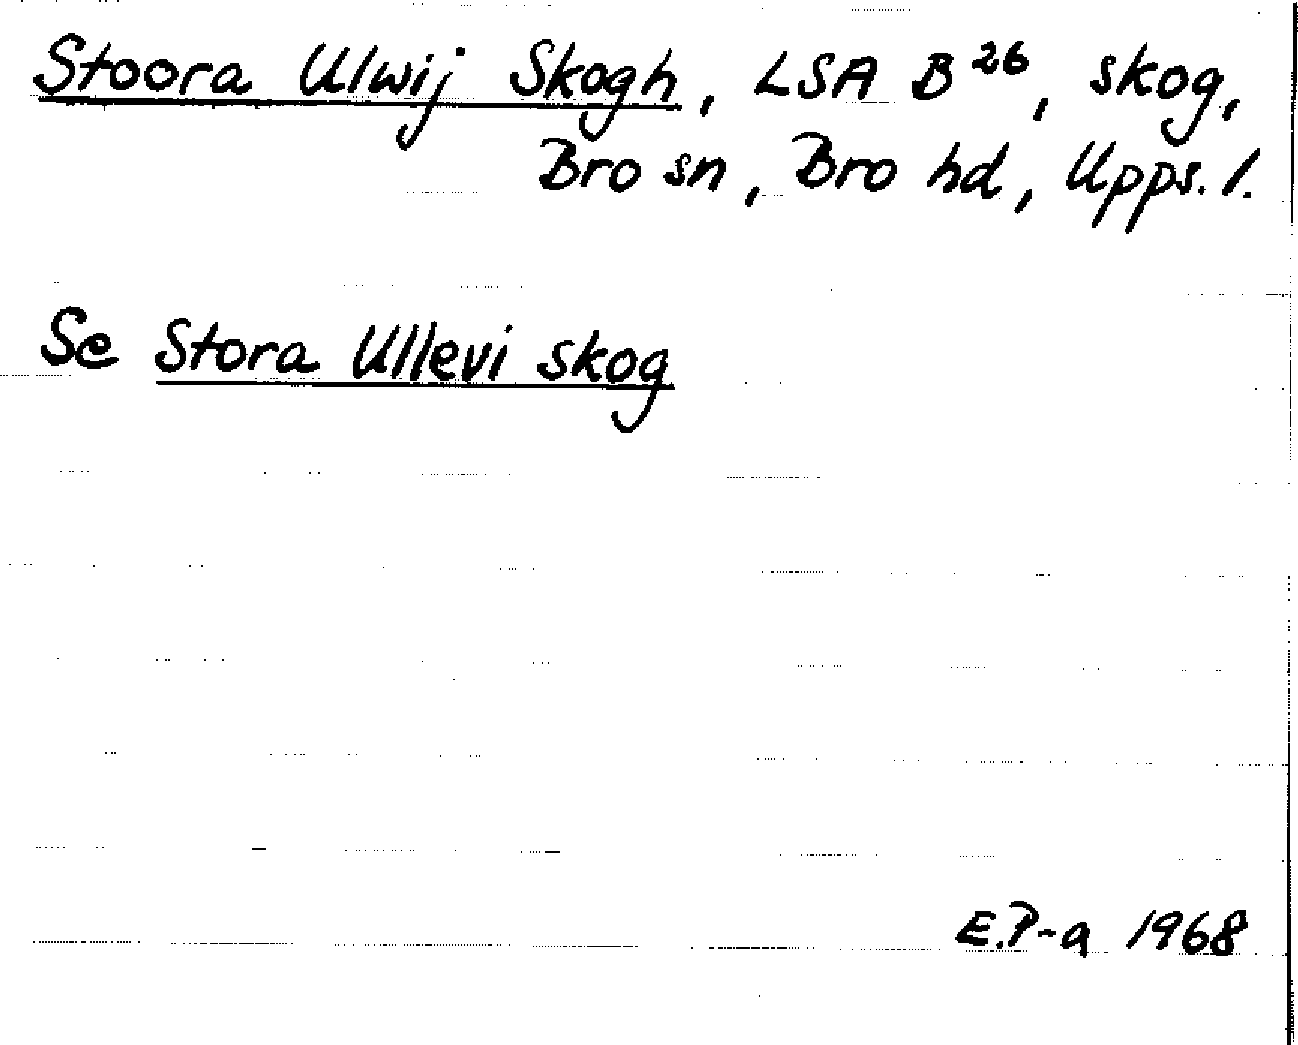 Stoora Ulwij Skogh, LSA B 26, skog,
Bro sn, Bro hd, Upps. l.
Se Stora Ullevi skog
E.P-a 1968